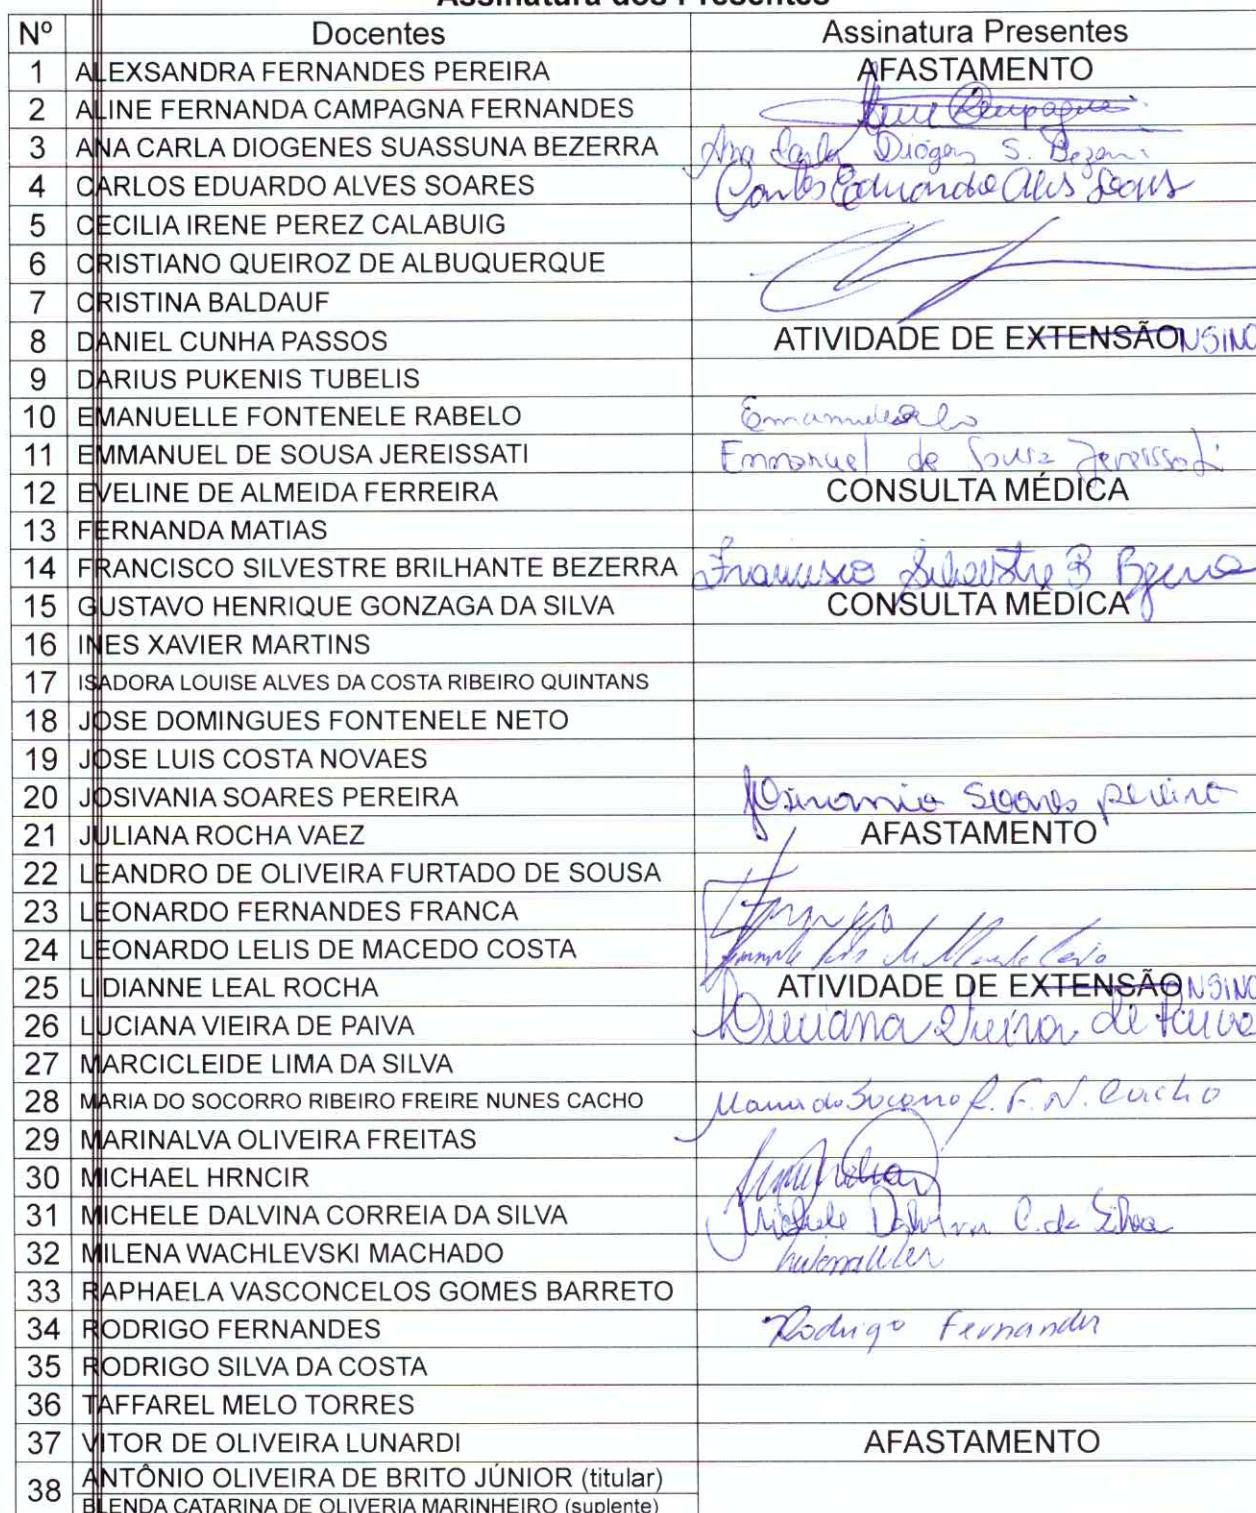 Assinatura dos Presentes
Nº Docentes Assinatura Presentes
1 ALEXSANDRA FERNANDES PEREIRA AFASTAMENTO
2 ALINE FERNANDA CAMPAGNA FERNANDES Campagna
3 ANA CARLA DIOGENES SUASSUNA BEZERRA Ana Carla Diógenes S. Bezerra
4 CARLOS EDUARDO ALVES SOARES Carlos Eduardo Alves Soares
5 CECILIA IRENE PEREZ CALABUIG
6 CRISTIANO QUEIROZ DE ALBUQUERQUE
7 CRISTINA BALDAUF
8 DANIEL CUNHA PASSOS ATIVIDADE DE EXTENSÃO NSINO
9 DARIUS PUKENIS TUBELIS
10 EMANUELLE FONTENELE RABELO
11 EMMANUEL DE SOUSA JEREISSATI Emmanuel de Sousa Jereissati
12 EVELINE DE ALMEIDA FERREIRA CONSULTA MÉDICA
13 FERNANDA MATIAS
14 FRANCISCO SILVESTRE BRILHANTE BEZERRA Francisco Silvestre B Bezerra
15 GUSTAVO HENRIQUE GONZAGA DA SILVA CONSULTA MÉDICA
16 INES XAVIER MARTINS
17 ISADORA LOUISE ALVES DA COSTA RIBEIRO QUINTANS
18 JOSE DOMINGUES FONTENELE NETO
19 JOSE LUIS COSTA NOVAES
20 JOSIVANIA SOARES PEREIRA Josivania Soares Pereira
21 JULIANA ROCHA VAEZ AFASTAMENTO
22 LEANDRO DE OLIVEIRA FURTADO DE SOUSA
23 LEONARDO FERNANDES FRANCA
24 LEONARDO LELIS DE MACEDO COSTA
25 LIDIANNE LEAL ROCHA ATIVIDADE DE EXTENSÃO NSINO
26 LUCIANA VIEIRA DE PAIVA Luciana Vieira de Paiva
27 MARCICLEIDE LIMA DA SILVA
28 MARIA DO SOCORRO RIBEIRO FREIRE NUNES CACHO Maria do Socorro R. F. N. Cacho
29 MARINALVA OLIVEIRA FREITAS
30 MICHAEL HRNCIR
31 MICHELE DALVINA CORREIA DA SILVA Michele Dalvina C. da Silva
32 MILENA WACHLEVSKI MACHADO
33 RAPHAELA VASCONCELOS GOMES BARRETO
34 RODRIGO FERNANDES Rodrigo Fernandes
35 RODRIGO SILVA DA COSTA
36 TAFFAREL MELO TORRES
37 VITOR DE OLIVEIRA LUNARDI AFASTAMENTO
38 ANTÔNIO OLIVEIRA DE BRITO JÚNIOR (titular)
BLENDA CATARINA DE OLIVERIA MARINHEIRO (suplente)